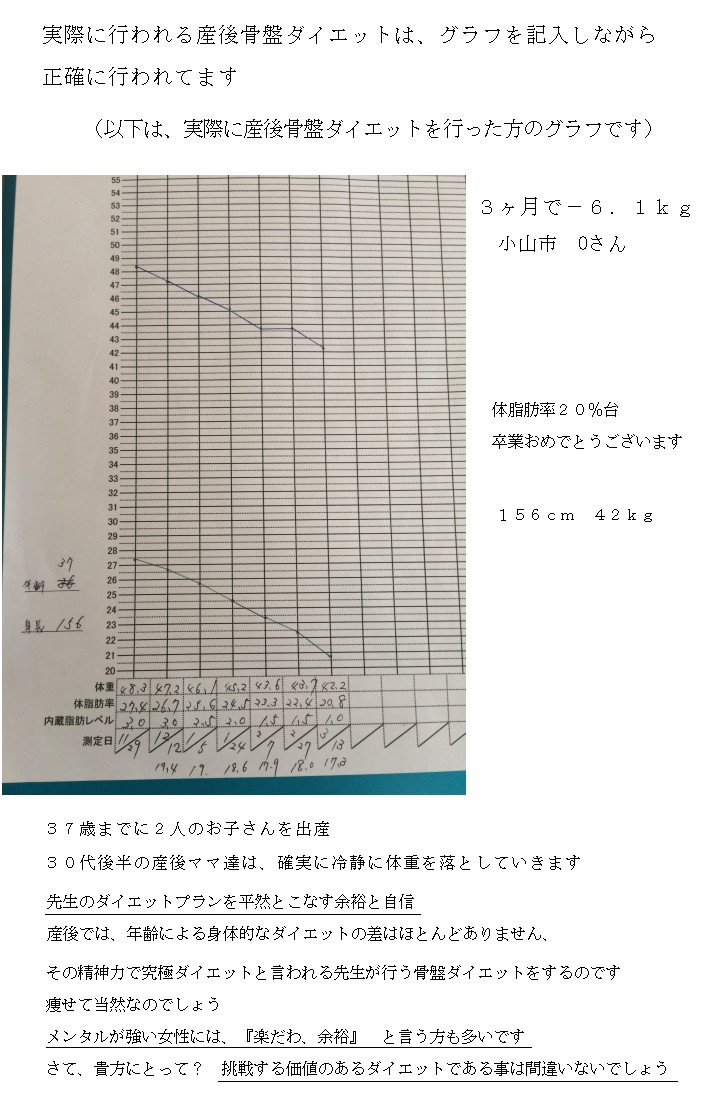 実際に行われる産後骨盤ダイエットは、グラフを記入しながら
正確に行われてます
（以下は、実際に産後骨盤ダイエットを行った方のグラフです）
３ヶ月で－６．１ｋｇ
小山市　Oさん
体脂肪率２０％台
卒業おめでとうございます
１５６ｃｍ　４２ｋｇ
55
54
53
52
51
50
49
48
47
46
45
44
43
42
41
40
39
38
37
36
35
34
33
32
31
30
29
28
27
26
25
24
23
22
21
20
37
年齢 36
身長 156
体重 48.3 47.2 46.1 45.2 43.6 43.7 42.2
体脂肪率 27.4 26.7 25.6 24.5 23.3 22.4 20.8
内蔵脂肪レベル 3.0 3.0 2.5 2.0 1.5 1.5 1.0
測定日 11/29 12/12 1/5 1/24 2/7 2/27 3/13
19.4 19. 18.6 17.9 18.0 17.3
３７歳までに２人のお子さんを出産
３０代後半の産後ママ達は、確実に冷静に体重を落としていきます
先生のダイエットプランを平然とこなす余裕と自信
産後では、年齢による身体的なダイエットの差はほとんどありません、
その精神力で究極ダイエットと言われる先生が行う骨盤ダイエットをするのです
痩せて当然なのでしょう
メンタルが強い女性には、『楽だわ、余裕』　と言う方も多いです
さて、貴方にとって？　挑戦する価値のあるダイエットである事は間違いないでしょう